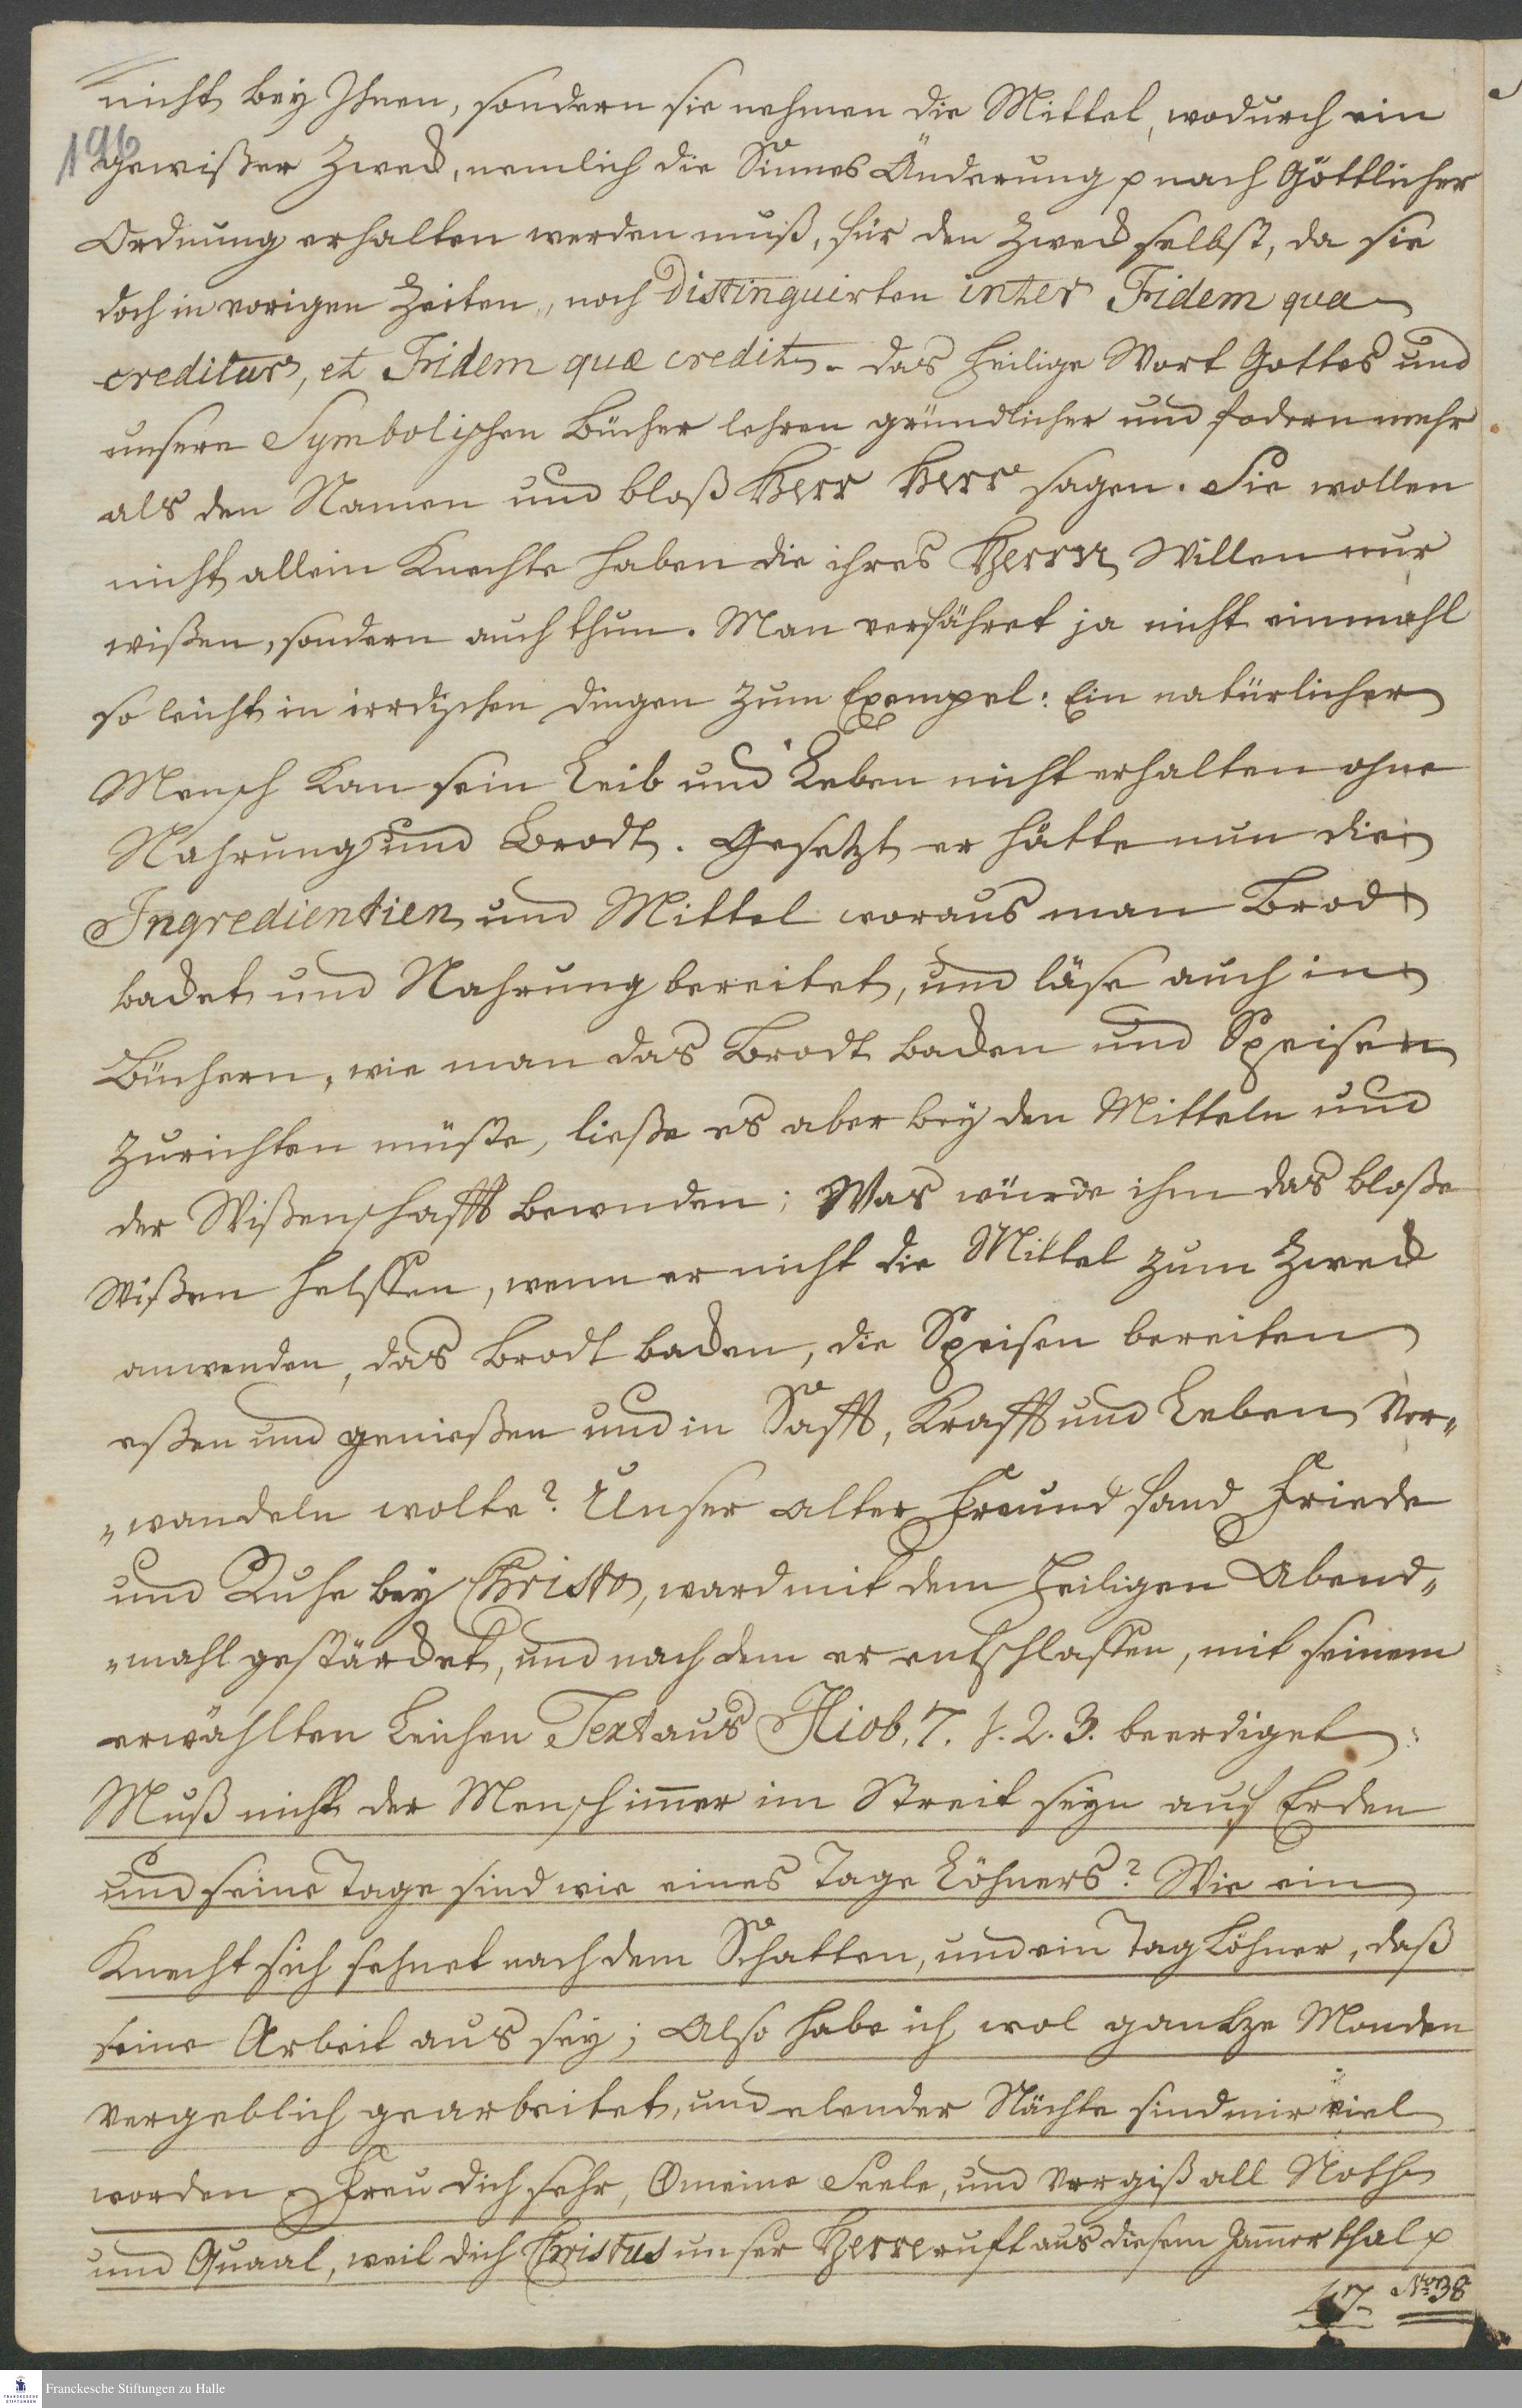 nicht bey Ihnen, sondern sie nehmen die Mittel, wodurch ein
196
gewißer Zweck, nemlich die Sinnes Änderung p nach Göttlicher
Ordnung erhalten werden muß, für den Zweck selbst, da sie
doch in vorigen Zeiten, noch distinguirten inter Fidem qua
creditur, et Fidem quæ credit. das heilige Wort Gottes und
unsere Symbolischen Bücher lehren gründlicher und fodern mehr
als den Namen und bloß Herr Herr sagen. Sie wollen
nicht allein Knechte haben die ihres Herrn Willen nur
wißen, sondern auch thun. Man verfähret ja nicht einmahl
so leicht in irrdischen dingen zum Exempel: Ein natürlicher
Mensch kan sein Leib und Leben nicht erhalten ohne
Nahrung und Brodt. Gesetzt er hätte nun die
Ingredientien und Mittel woraus man Brod
backet und Nahrung bereitet, und läse auch in
Büchern, wie man das Brodt backen und Speisen
zurichten müste, ließe es aber bey den Mitteln und
der Wißenschafft bewenden; Was würde ihm das bloße
Wißen helffen, wenn er nicht die Mittel zum Zweck
anwenden, das Brodt backen, die Speisen bereiten
eßen und genießen und in Safft, Krafft und Leben ver„
„wandeln wolte? Unser alter Freund fand Friede
und Ruhe bey Christo, ward mit dem heiligen Abend„
„mahl gestärcket, und nach dem er entschlaffen, mit seinem
erwählten Leichen Text aus Hiob. 7. 1. 2. 3. beerdiget:
Muß nicht der Mensch immer im Streit seyn auf Erden
und seine Tage sind wie eines Tage Löhners? Wie ein
Knecht sich sehnet nach dem Schatten, und ein Tag Löhner, daß
seine Arbeit aus sey; Also habe ich wol gantze Monden
vergeblich gearbeitet, und elender Nächte sind mir viel
worden Freu dich sehr, O meine Seele, und vergiß all Noth
und Quaal, weil dich Christus unser Herre ruft aus diesem Jammerthal p
47 No: 38
Franckesche Stiftungen zu Halle